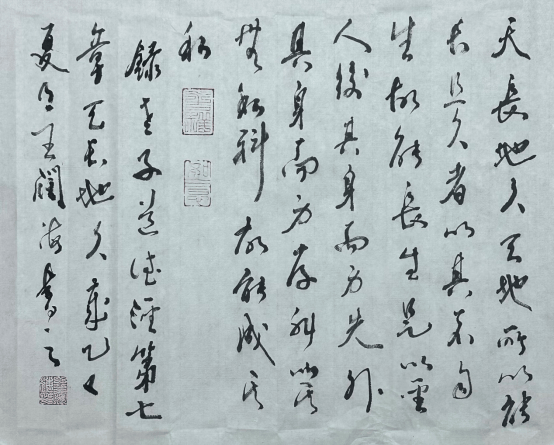 天長地久天地所以能
長且久者以其不自
生故能長生是以聖
人後其身而身先外
其身而身存非以其
無私耶故能成其
私
錄老子道德經第七
章天長地久歲乙
夏月王闊海書之